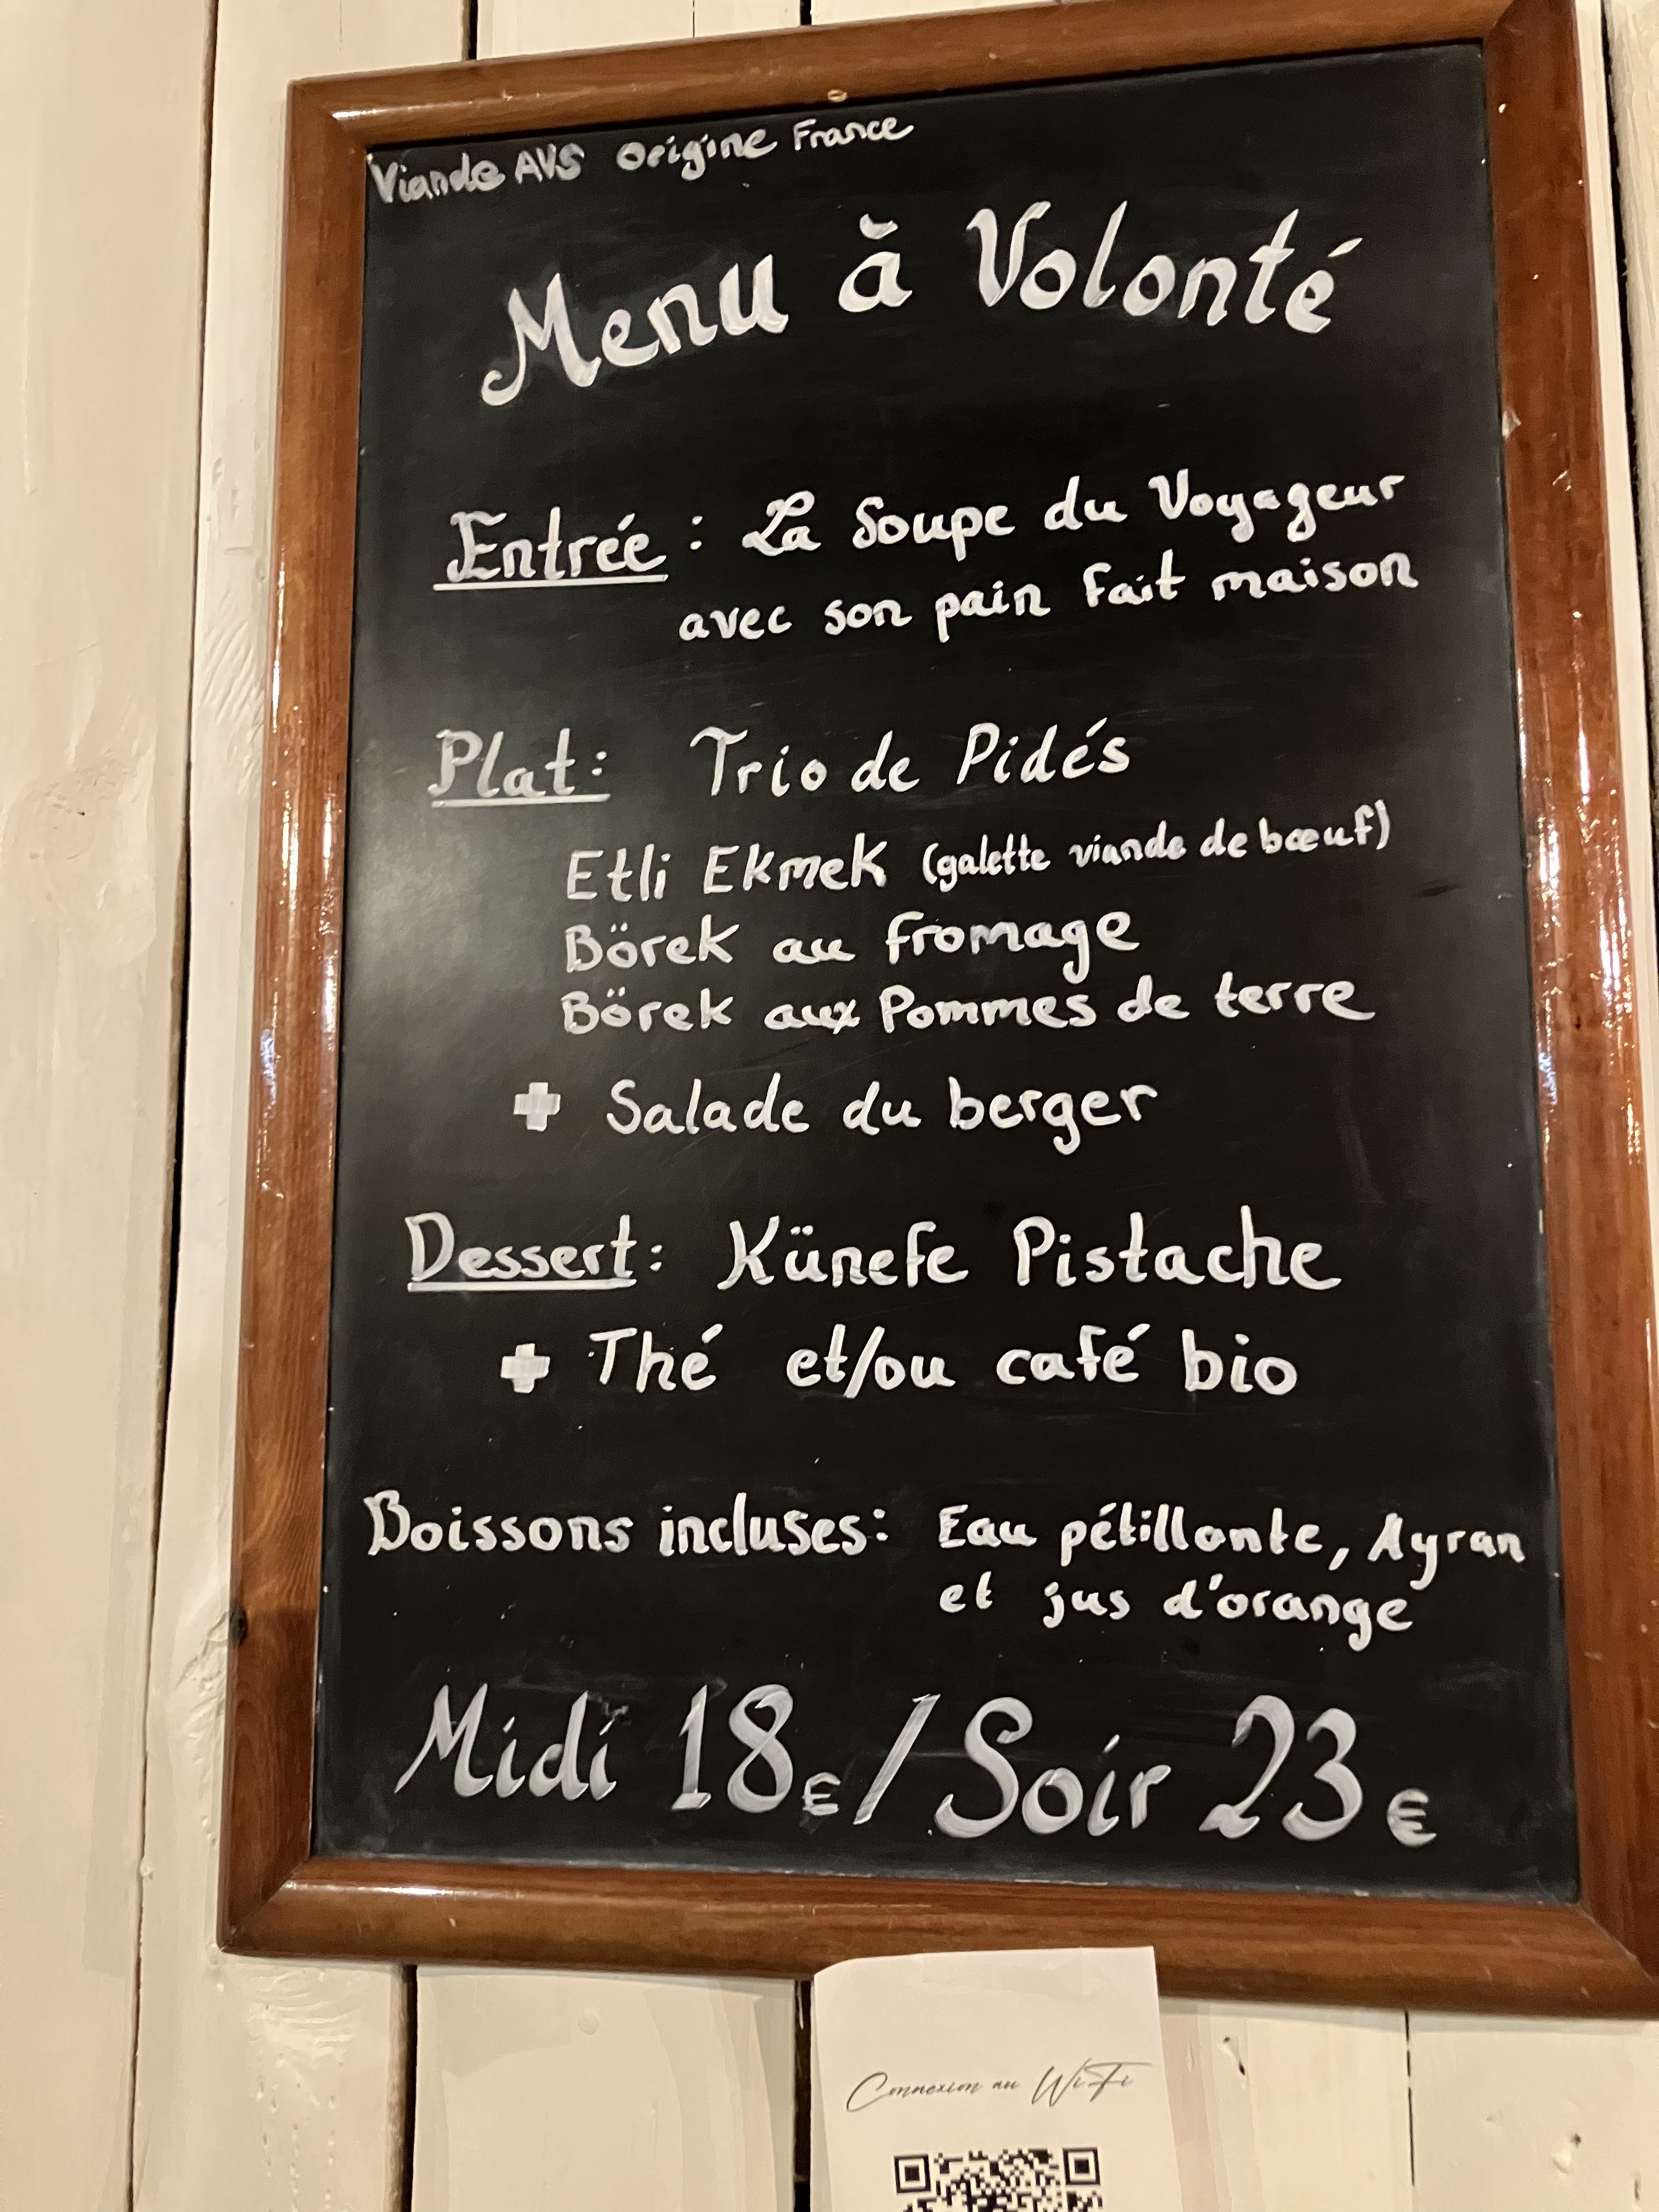 Viande AVS Origine France
Menu à Volonté
Entrée : La Soupe du Voyageur
avec son pain fait maison
Plat : Trio de Pidés
Etli Ekmek (galette viande de bœuf)
Börek au fromage
Börek aux Pommes de terre
+ Salade du berger
Dessert : Künefe Pistache
+ Thé et/ou café bio
Boissons incluses : Eau pétillante, Ayran
et jus d'orange
Midi 18€ / Soir 23€
Connexion au WiFi